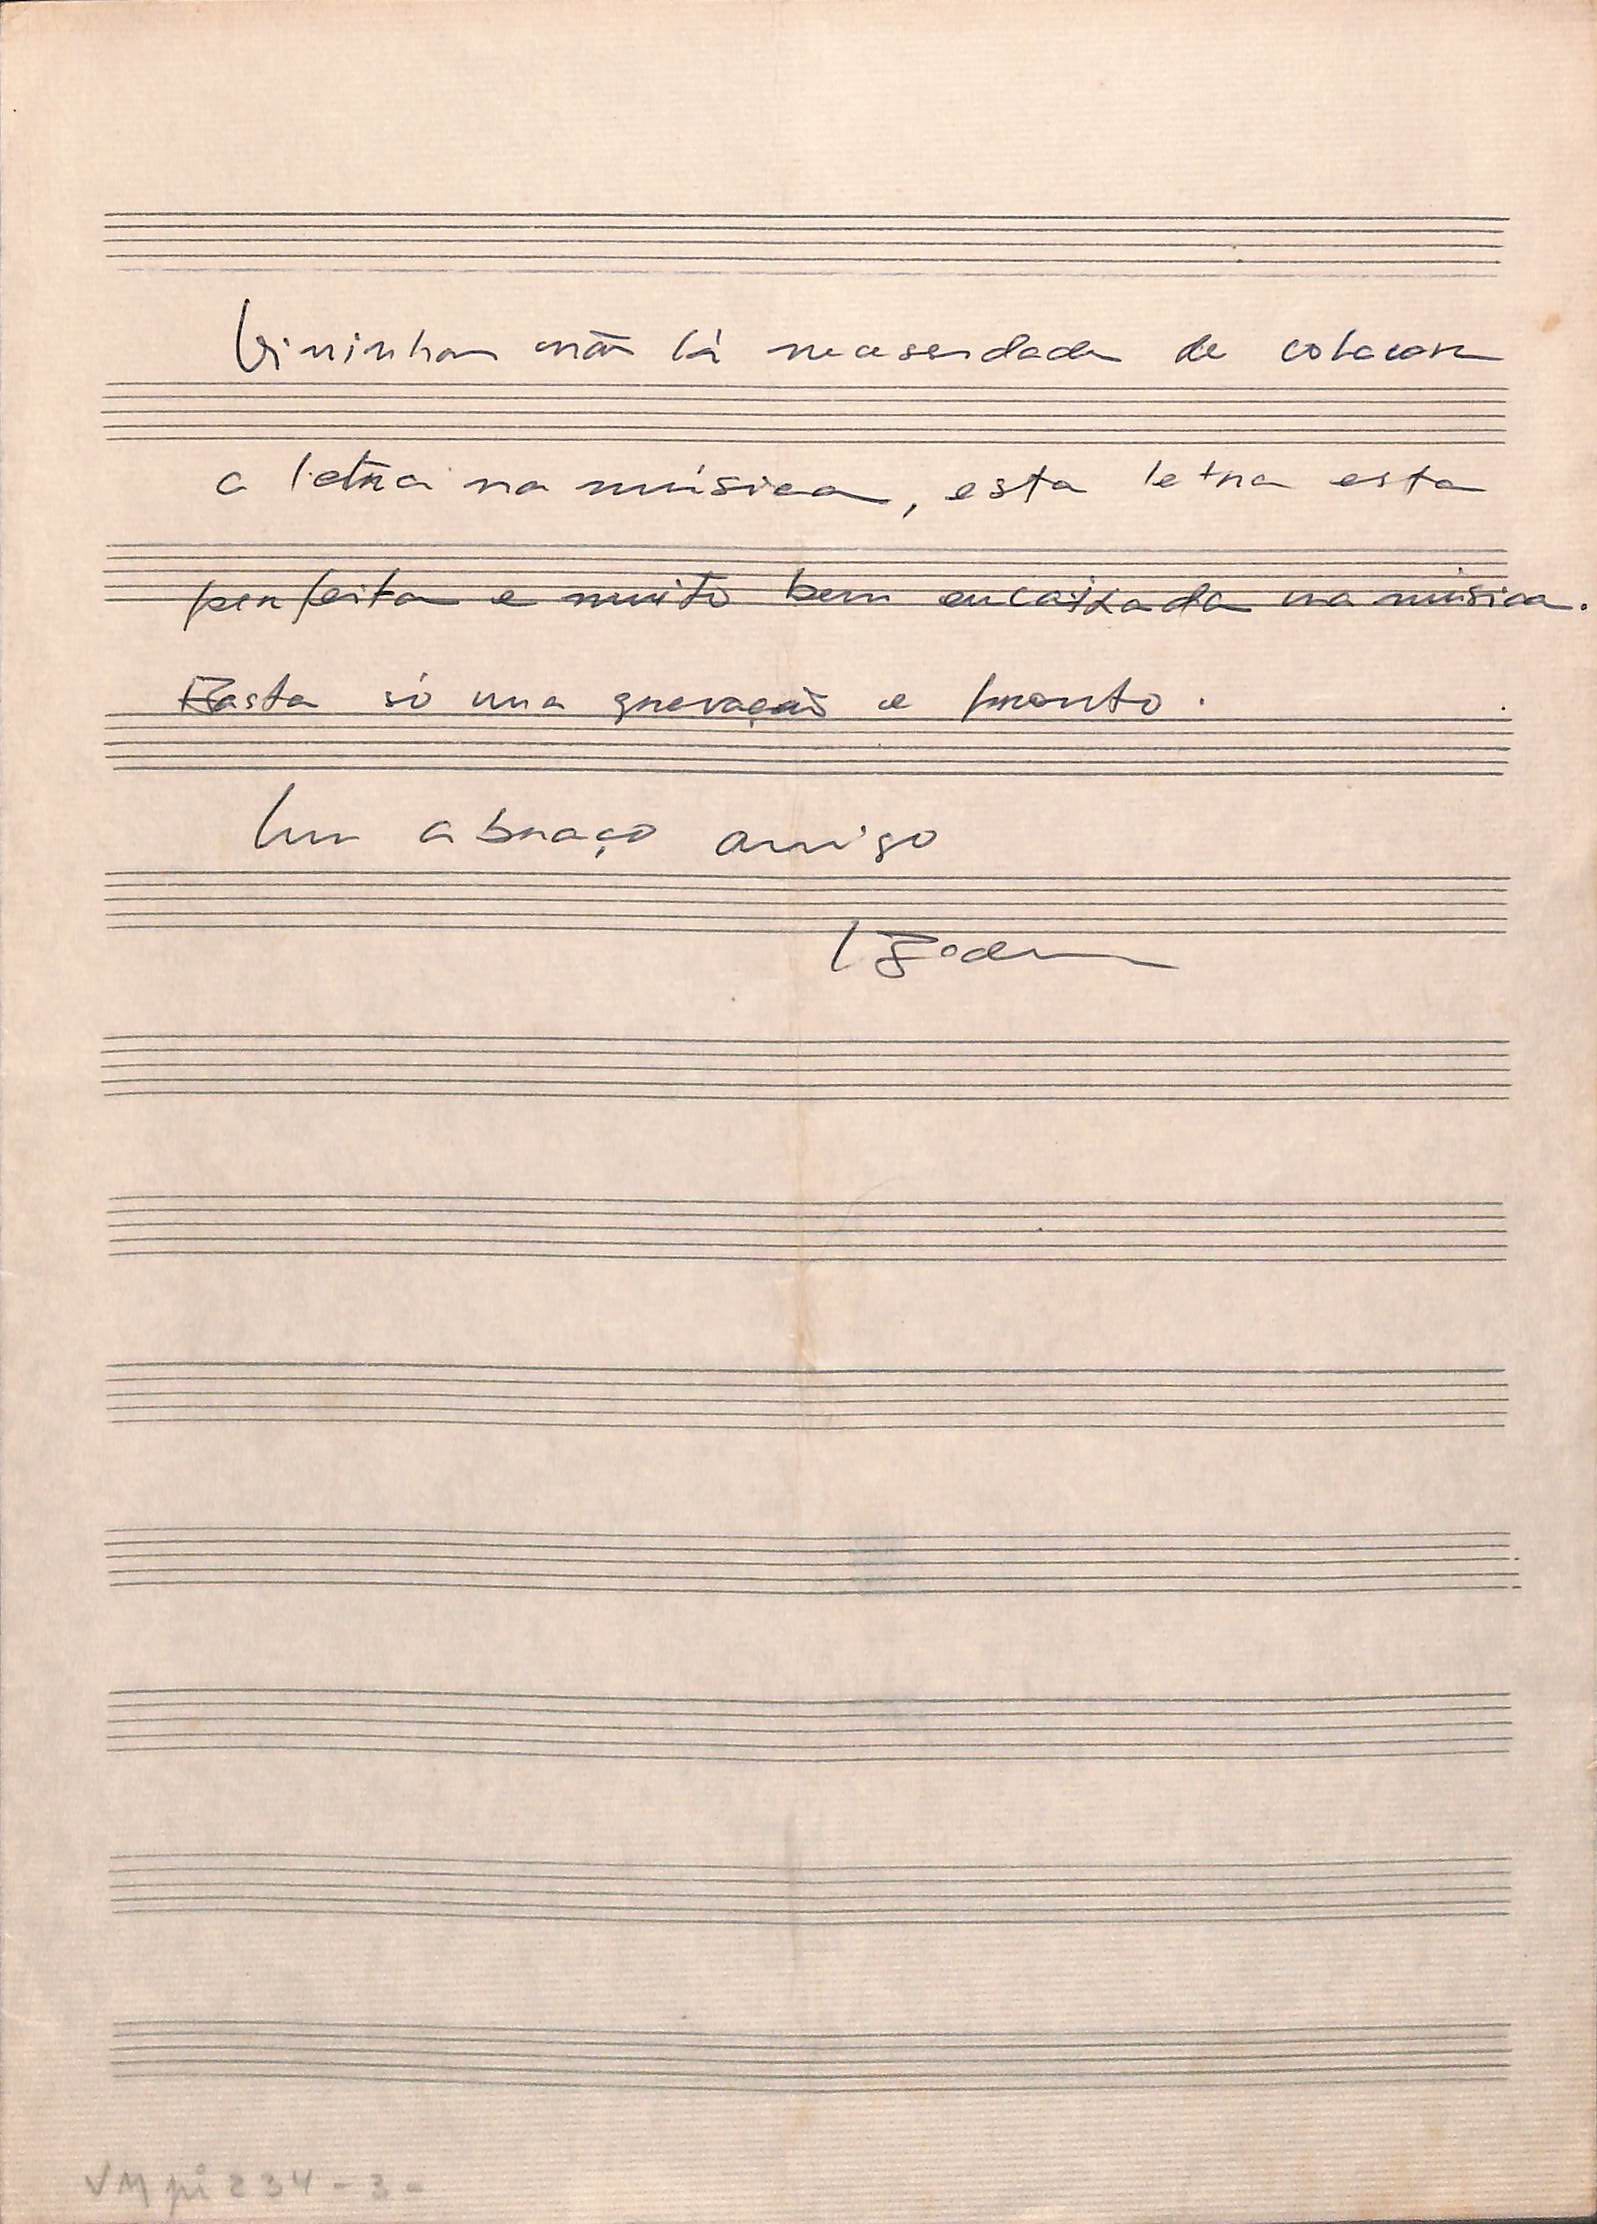 Vininha não há necesidade de colocar
a letra na música, esta letra esta
perfeita e muito bem encaixada na música.
Basta só uma gravação e pronto.
Um abraço amigo
VM pi 234 - 3 -